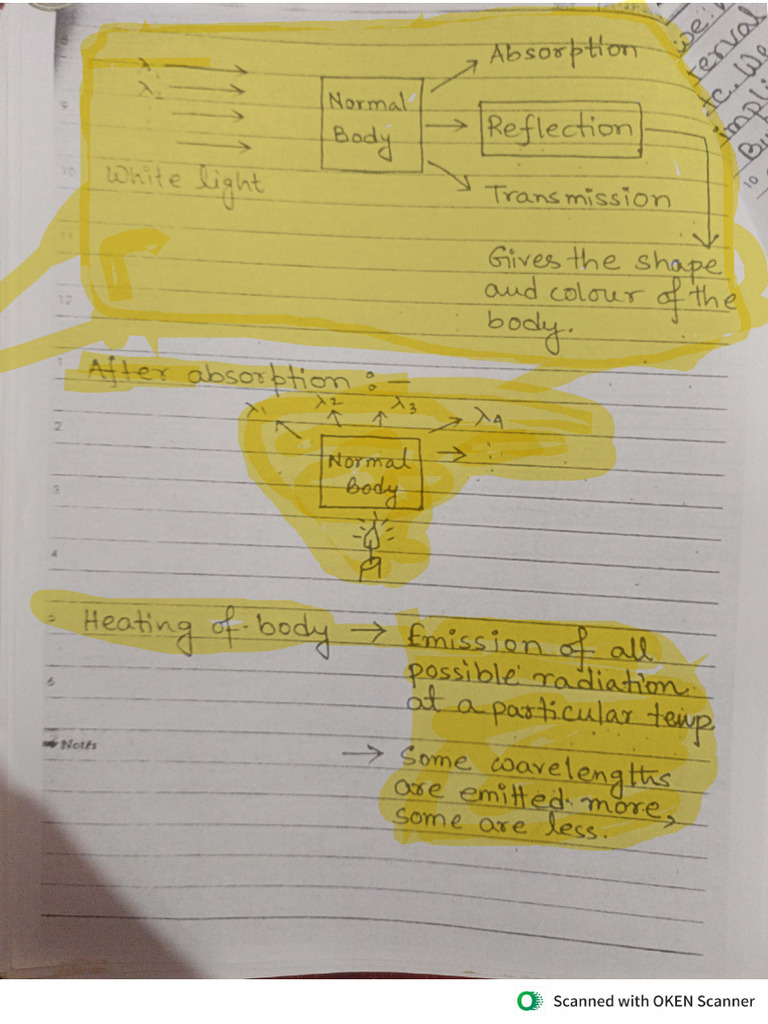 Absorption
λ1
λ2
Normal
Body
Reflection
White light
Transmission
Gives the shape
and colour of the
body.
After absorption :-
λ1 λ2 λ3 λ4
Normal
Body
Heating of body → Emission of all
possible radiation
at a particular temp
→ Some wavelengths
are emitted more,
some are less.
Notes
we
terval
etc. We
impli
Bu
9
10
11
12
1
2
3
4
5
6
10
Scanned with OKEN Scanner